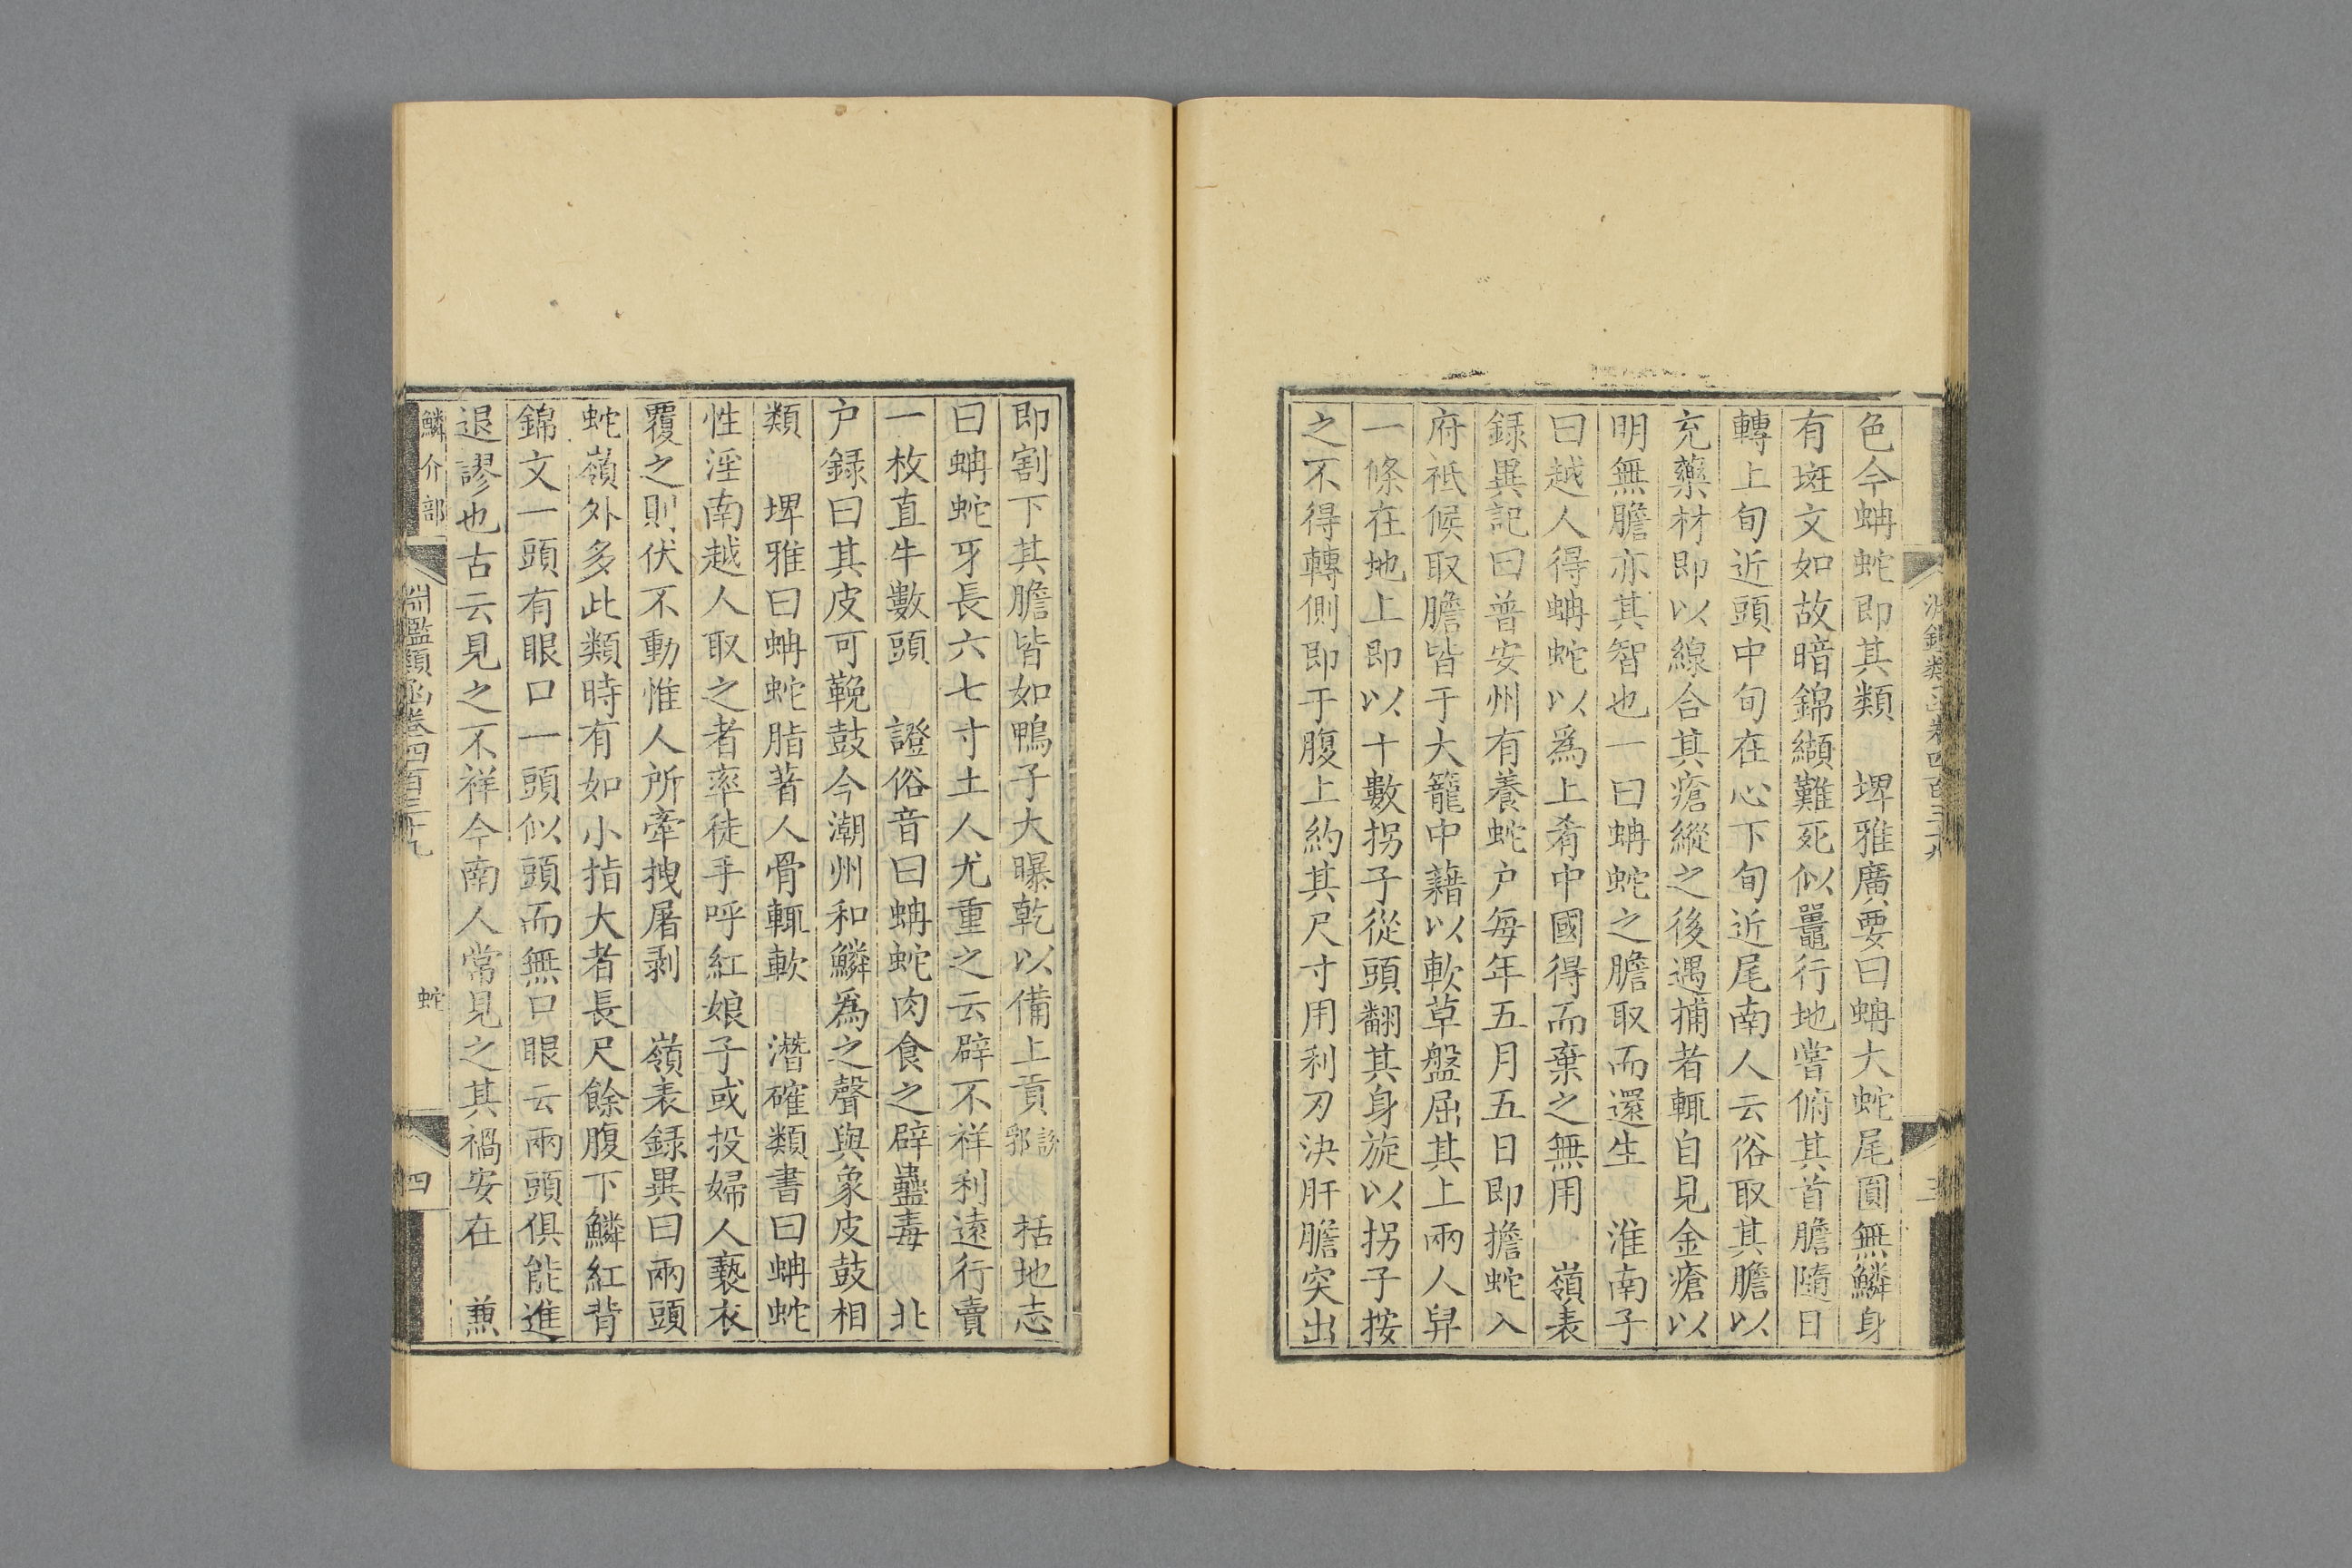 色今蚺蛇即其類　埤雅廣要曰蚺大蛇尾圓無鱗身
有斑文如故暗錦纈難死似鼉行地嘗俯其首膽隨日
轉上旬近頭中旬在心下旬近尾南人云俗取其膽以
充藥材即以線合其瘡縱之後遇捕者輒自見金瘡以
明無膽亦其智也一曰蚺蛇之膽取而還生　淮南子
曰越人得蚺蛇以爲上肴中國得而棄之無用　嶺表
録異記曰普安州有養蛇户每年五月五日即擔蛇入
府祗候取膽皆于大籠中藉以軟草盤屈其上兩人舁
一條在地上即以十數拐子從頭翻其身旋以拐子按
之不得轉側即于腹上約其尺寸用利刃決肝膽突出
即割下其膽皆如鴨子大曝乾以備上貢說郛　括地志
曰蚺蛇牙長六七寸土人尤重之云辟不祥利遠行賣
一枚直牛數頭　證俗音曰蚺蛇肉食之辟蠱毒　北
户録曰其皮可鞔鼓今潮州和鱗爲之聲與象皮鼓相
類　埤雅曰蚺蛇脂著人骨輒軟　潛確類書曰蚺蛇
性淫南越人取之者率徒手呼紅娘子或投婦人褻衣
覆之則伏不動惟人所牽拽屠剥　嶺表録異曰兩頭
蛇嶺外多此類時有如小指大者長尺餘腹下鱗紅背
錦文一頭有眼口一頭似頭而無口眼云兩頭俱能進
退謬也古云見之不祥今南人常見之其禍安在　兼
鱗介部
淵鑑類函卷四百三十九
蛇
四